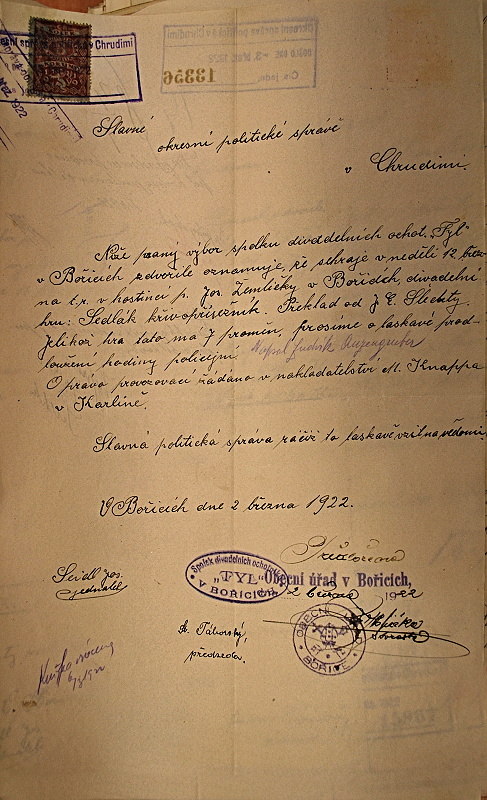 esní správa politická v Chrudimi
1922
13356
Slavné
okresní politické správě
v Chrudimi.
Níže psaný výbor spolku divadelních ochot. „Tyl“
v Bořicích zdvořile oznamuje, že sehraje v neděli 12. březe
na t.r. v hostinci p. Jos. Zemličky v Bořicích, divadelní
hru: Sedlák křivopřísežník. Překlad od J. E. Šlechty.
Jelikož hra tato má 7 proměn, prosíme o laskavé prod
loužení hodiny policejní. Napsal Ludvík Anzengruber
O právo provozovací žádáno v nakladatelství M. Knappa
v Karlíně.
Slavná politická správa račiž to laskavě vzíti na vědomí.
V Bořicích dne 2 března 1922.
Spolek divadelních ochotníků
„TYL“
V BOŘICÍCH
Obecní úřad v Bořicích,
2 března 1922
Seidl Jos.
jednatel
A. Táborský,
předseda.
OBECNÍ ÚŘAD
BOŘICE
starosta